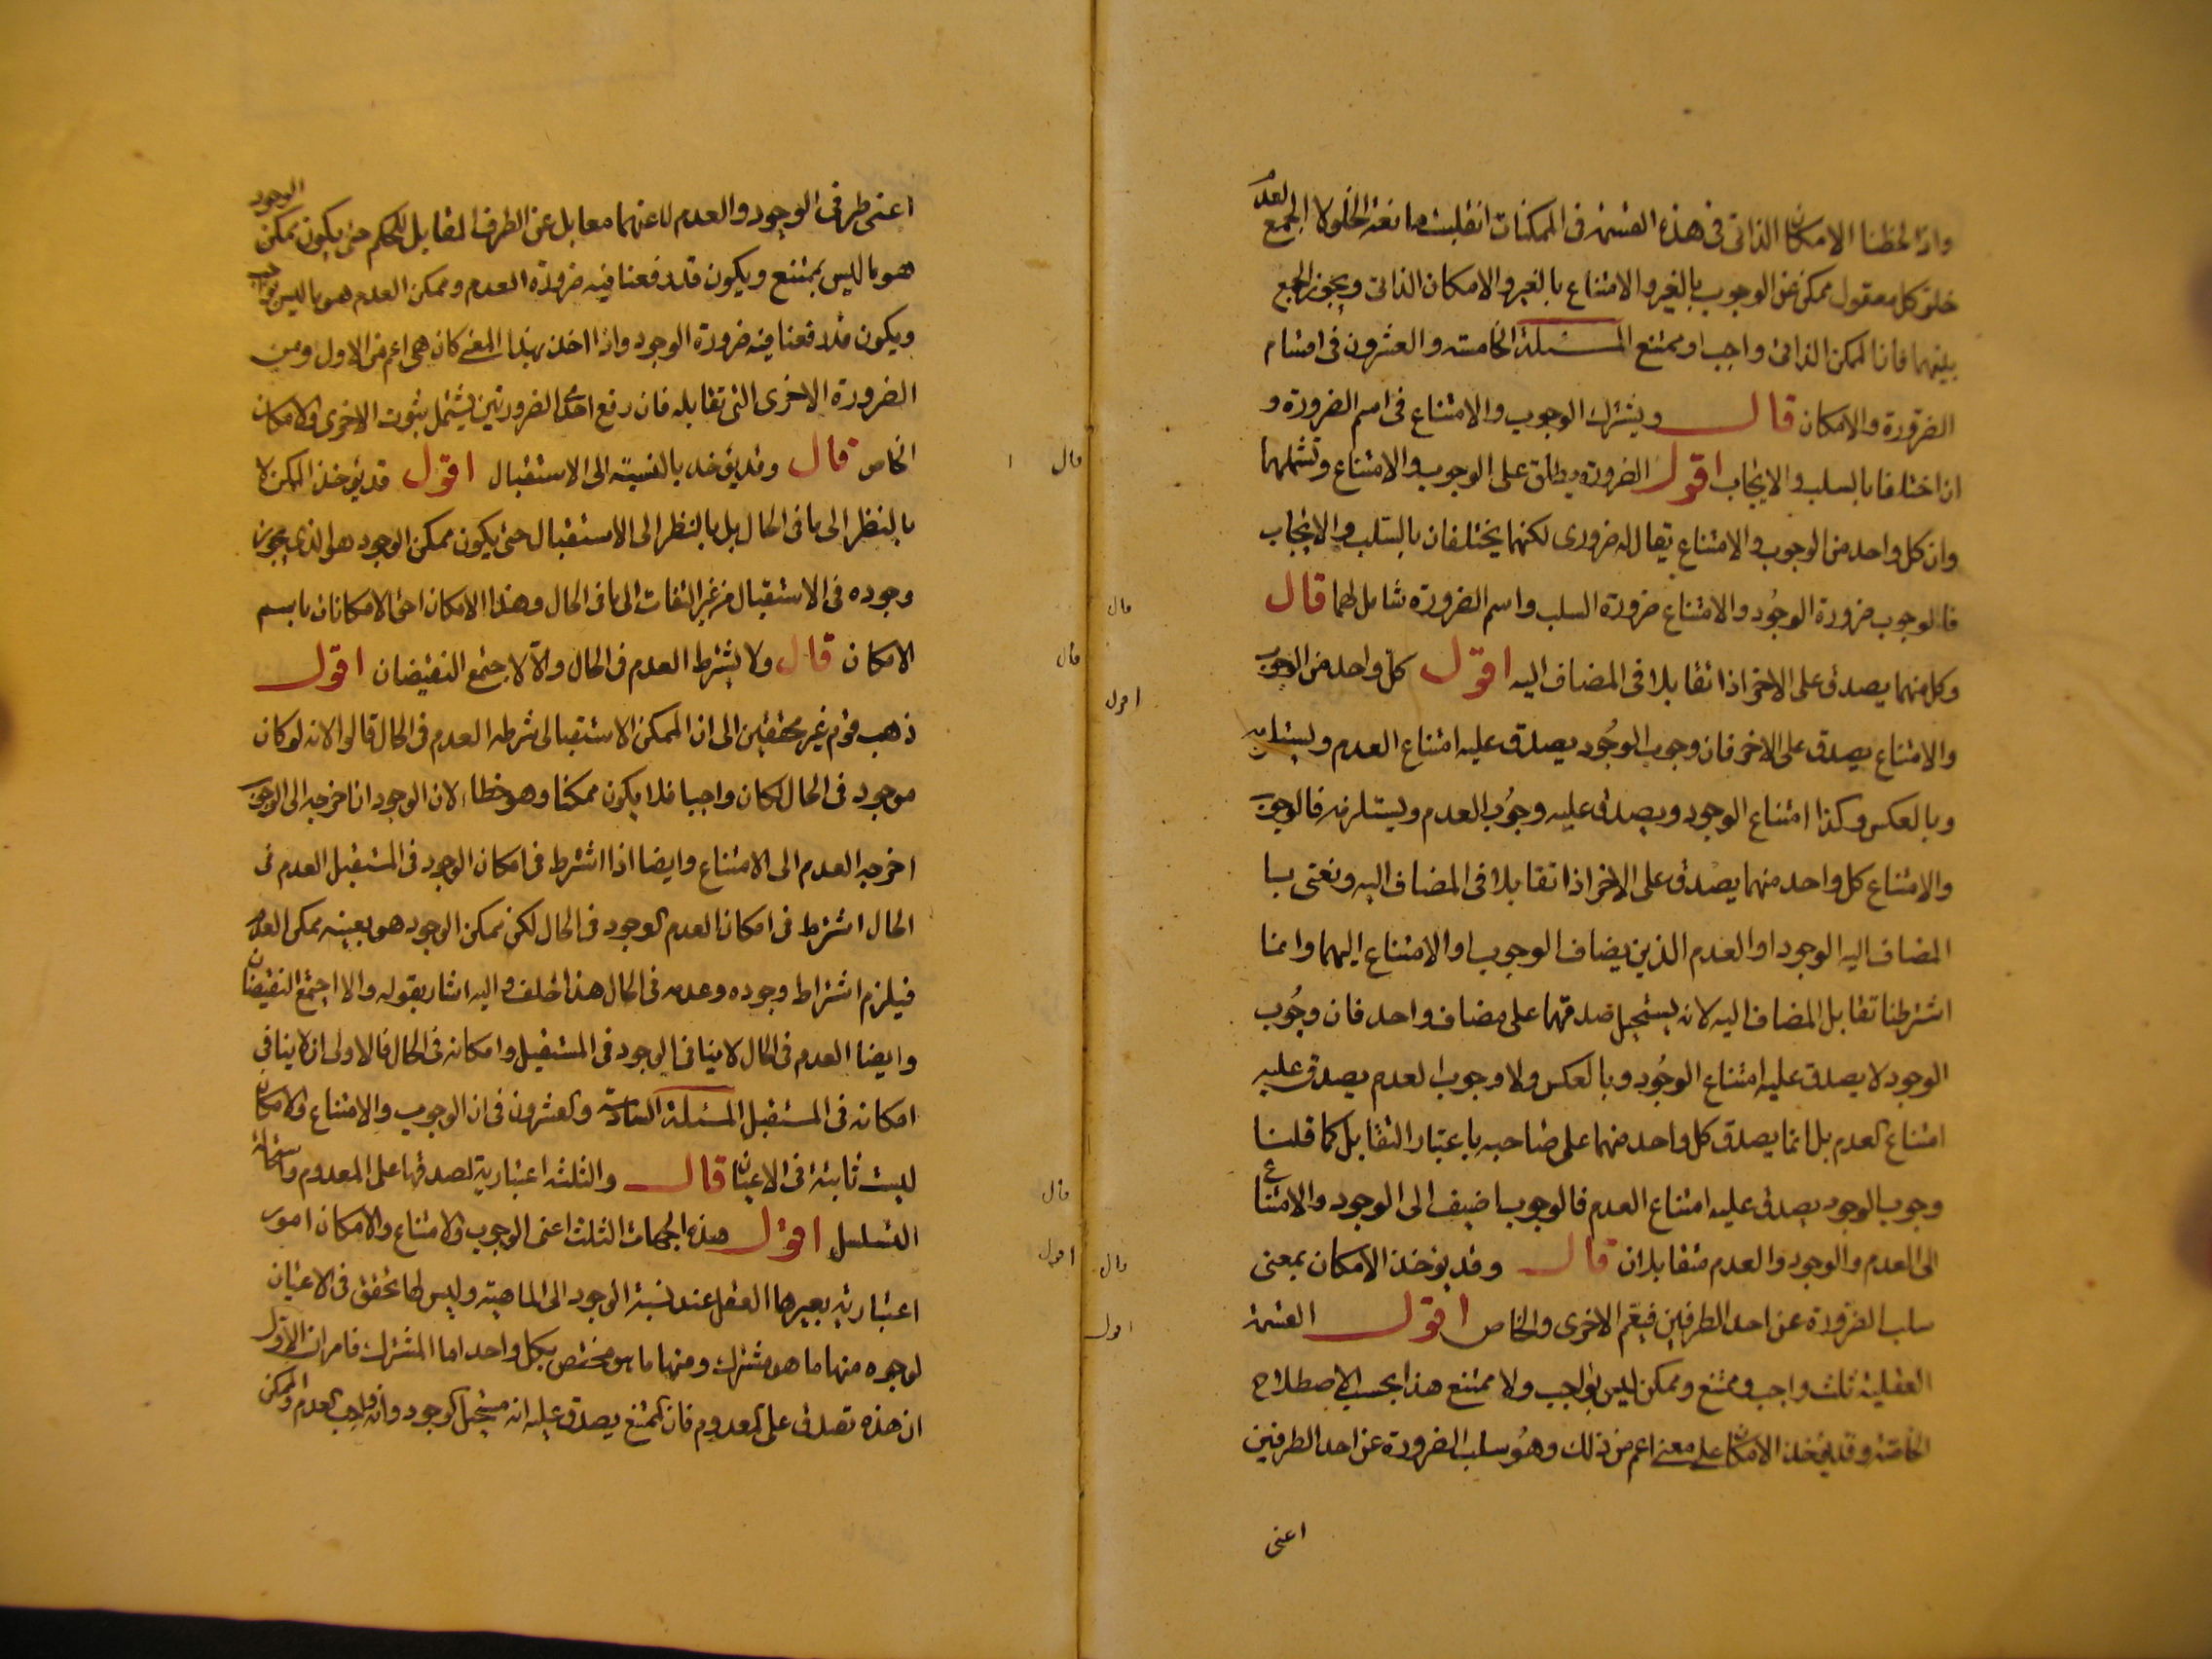 واذا لحظنا الامكان الذاتى فى هذه القسمة فى الممكنات انقلبت مانعة الخلو لا الجمع لعدم
خلو كل معقول ممكن عن الوجوب بالغير والامتناع بالغير والامكان الذاتى ويجوز الجمع
بينهما فان الممكن الذاتى واجب او ممتنع المسئلة الخامسه والعشرون فى اقسام
الضرورة والامكان قال ويشترك الوجوب والامتناع فى اسم الضرورة و
ان اختلفا بالسلب والايجاب اقول الضرورة يطلق على الوجوب والامتناع وتشملهما
وان كل واحد من الوجوب والامتناع يقال له ضرورى لكنهما يختلفان بالسلب والايجاب
فالوجوب ضرورة الوجود والامتناع ضرورة السلب واسم الضرورة شامل لهما قال
وكل منهما يصدق على الاخر اذا تقابلا فى المضاف اليه اقول كل واحد من الوجوب
والامتناع يصدق على الاخر فان وجوب الوجود يصدق عليه امتناع العدم ويستلزمه
وبالعكس وكذا امتناع الوجود ويصدق عليه وجوب العدم ويستلزمه فالوجوب
والامتناع كل واحد منهما يصدق على الاخر اذا تقابلا فى المضاف اليه ونعنى بـا
المضاف اليه الوجود او العدم الذين يضاف الوجوب او الامتناع اليهما وانما
اشترطنا تقابل المضاف اليه لانه يستحيل صدقهما على مضاف واحد فان وجوب
الوجود لا يصدق عليه امتناع الوجود وبالعكس ولا وجوب العدم يصدق عليه
امتناع العدم بل انما يصدق كل واحد منهما على صاحبه باعتبار التقابل كما قلنا
وجوب الوجود يصدق عليه امتناع العدم فالوجوب اضيف الى الوجود والامتناع
الى العدم والوجود والعدم متقابلان قال وقد يؤخذ الامكان بمعنى
سلب الضرورة عن احد الطرفين فيعم الاخرى والخاص اقول القسمة
العقلية ثلث واجب وممتنع وممكن ليس بواجب ولا ممتنع هذا بحسب الاصطلاح
الخاصة وقد يؤخذ الامكان على معنى اعم من ذلك وهو سلب الضرورة عن احد الطرفين
اعنى
قال
اقول
قال
اقول
اعنى طرفى الوجود والعدم لا عنهما معا بل عن الطرف المقابل للحكم حتى يكون ممكن الوجود
هو ما ليس بممتنع ويكون قد رفعنا فيه ضرورة العدم وممكن العدم هو ما ليس بواجب
ويكون قد رفعنا فيه ضرورة الوجود واذا اخذ بهذا المعنى كان هى اعم من الاول ومن
الضرورة الاخرى التى تقابله فان رفع احدى الضرورتين يشتمل ثبوت الاخرى والامكان
الخاص قال وقد يؤخذ بالنسبة الى الاستقبال اقول قد يؤخذ الممكن لا
بالنظر الى ما فى الحال بل بالنظر الى الاستقبال حتى يكون ممكن الوجود هو الذى يجوز
وجوده فى الاستقبال من غير التفات الى ما فى الحال وهذا الامكان احق الامكانات باسم
الامكان قال ولا يشترط العدم فى الحال والا لاجتمع النقيضان اقول
ذهب قوم غير محققين الى ان الممكن الاستقبالى شرطه العدم فى الحال قالوا لانه لو كان
موجود فى الحال لكان واجبا فلا يكون ممكنا وهو خطاء لان الوجود ان اخرجه الى الوجوب
اخرجه العدم الى الامتناع وايضا اذا اشترط فى امكان الوجود فى المستقبل العدم فى
الحال اشترط فى امكان العدم الوجود فى الحال لكن ممكن الوجود هو بعينه ممكن العدم
فيلزم اشتراط وجوده وعدمه فى الحال هذا خلف واليه اشار بقوله والا اجتمع النقيضان
وايضا العدم فى الحال لا ينافى الوجود فى المستقبل وامكانه فى الحال فالاولى ان لا ينافى
امكانه فى المستقبل المسئلة السادسة والعشرون فى ان الوجوب والامتناع والامكان
ليست ثابتة فى الاعيان قال والثلثه اعتبارية لصدقها على المعدوم واستحالة
التسلسل اقول هذه الجهات الثلث اعنى الوجوب والامتناع والامكان امور
اعتبارية يعبرها العقل عند نسبة الوجود الى الماهية وليس لها تحقق فى الاعيان
لوجوه منها ما هو مشترك ومنها ما هو مختص بكل واحد اما المشترك فامران الاول
ان هذه تصدق على المعدوم فان الممتنع يصدق عليه انه مستحيل الوجود وانه واجب العدم والممكن
قال
قال
قال
اقول